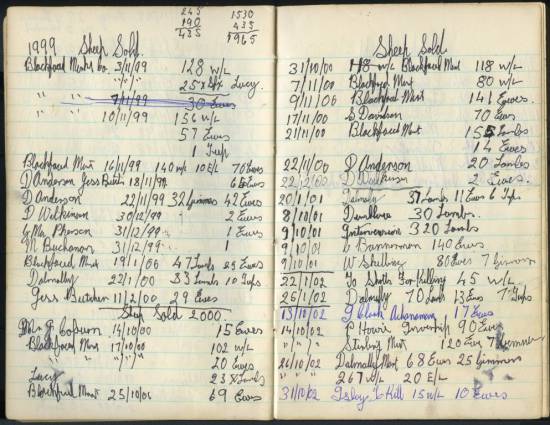 245 1530
190 435
435 1965
1999 Sheep Sold.
Blackfaced 3/11/99 128 W/L
" " " " 25 Lucy.
" " 7/11/99 30 Ewes
" " 10/11/99 156 W/L
57 Ewes
1 Tup
Blackfaced Mart 16/11/99 140 W/L 10 E/L 70 Ewes
D Anderson Jess Butcher 18/11/99 6 Ewes
D Anderson 22/11/99 32 Gimmers 42 Ewes
D Wilkinson 30/12/99 2 Ewes
C McPherson 31/12/99 1 Ewes
M Buchanan 31/12/99 1
Blackfaced Mart 19/1/00 47 Lambs 25 Ewes
Dalmally 22/1/00 33 Lambs 10 Tups
Jess Butcher 11/2/00 29 Ewes
Sheep Sold 2000
14/10/00 15 Ewes
Blackfaced Mart 17/10/00 102 W/L
" " " 20 Ewes
Lucy 23 Lambs
Blackfaced Mart 25/10/00 69 Ewes
Sheep Sold
31/10/00 W/L Blackfaced Mart 118 W/L
7/11/00 Blackfaced Mart 80 W/L
9/11/00 Blackfaced Mart 141 Ewes
17/11/00 S Davidson 70 Ewes
21/11/00 Blackfaced Mart 155 Lambs
14 Ewes
22/11/00 D Anderson 20 Lambs
D Wilkinson 2 Ewes
20/1/01 Dalmally 37 Lambs 11 Ewes 6 Tups
8/10/01 30 Lambs.
9/10/01 320 Lambs
9/10/01 Bannerman 140 Ewes
9/10/01 W Shilling 80 Ewes 7 Gimmers
22/1/02 To Skates For Killing 45 W/L
25/1/02 Dalmally 70 Lambs 13 Ewes 7 Tups
13/10/02 G Clark 17 Ewes
14/10/02 P Howie 90 Ewes
Stirling Mart 120 Ewes 7 Gimmers
26/10/02 Dalmally Mart 68 Ewes 25 Gimmers
" " " 267 W/L 20 E/L
31/10/02 Islay To Kill 15 W/L 10 Ewes